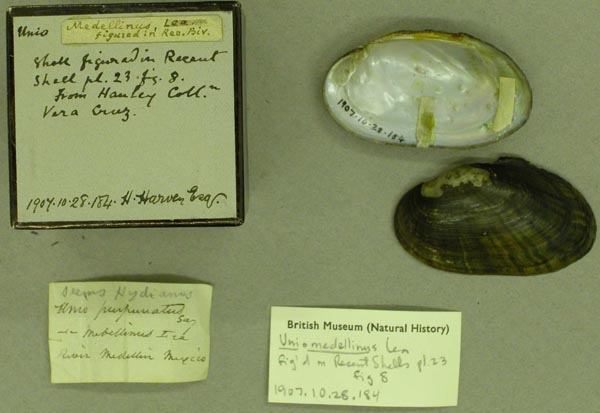 Unio Medellinus, Lea
figured in Rec. Biv.
Shell figured in Recent
Shell pl. 23. fig. 8.
From Hanley Colln
Vera Cruz.
1907.10.28.184. H. Harvey Esq.
1907.10.28.184
Seems Hydianus
Unio purpuratus
Medellinus Lea
River Medellin Mexico
British Museum (Natural History)
Unio medellinus Lea
fig'd in Recent Shells pl. 23
fig 8
1907.10.28.184